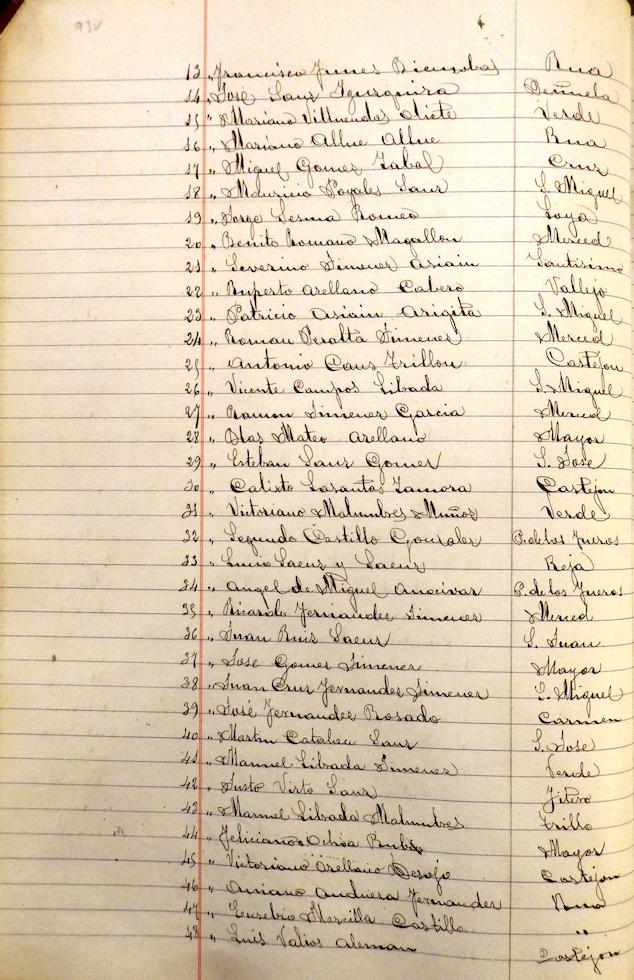 93v
13 „ Francisco Funes Bienzobas Rua
14 „ José Sanz Ygurquiza Peñuela
15 „ Mariano Villuendas Oliete Verde
16 „ Mariano Allue Allue Rua
17 „ Miguel Gomez Zabal Cruz
18 „ Mauricio Poyales Sanz S. Miguel
19 „ Jorge Sesma Romeo Goya
20 „ Benito Romano Magallon Merced
21 „ Severino Jimenez Asiain Santisimo
22 „ Ruperto Arellano Cabero Vallejo
23 „ Patricio Asiain Arigita S. Miguel
24 „ Roman Peralta Jimenez Merced
25 „ Antonio Caus Trillon Castejon
26 „ Vicente Campos Librada S. Miguel
27 „ Ramon Jimenez Garcia Merced
28 „ Blas Mateo Arellano Mayor
29 „ Esteban Sanz Gomez S. Jose
30 „ Calisto Lasantas Zamora Castejon
31 „ Vitoriano Malumbres Muñoz Verde
32 „ Segundo Castillo Gonzalez P. de los Fueros
33 „ Lucio Saenz y Saenz Reja
34 „ Angel de Miguel Anocivar P. de los Fueros
35 „ Ricardo Fernandez Jimenez Merced
36 „ Juan Ruiz Saenz S. Juan
37 „ Jose Gomez Jimenez Mayor
38 „ Juan Cruz Fernandez Jimenez S. Miguel
39 „ José Fernandez Rosado Carmen
40 „ Martin Catalan Sanz S. Jose
41 „ Manuel Librada Jimenez Verde
42 „ Justo Virto Sanz Fitero
43 „ Manuel Librada Malumbres Trillo
44 „ Feliciano Ochoa Rubio Mayor
45 „ Victoriano Arellano Castejon
46 „ Aniano Andueza Fernandez Rua
47 „ Eusebio Marcilla Castillo „
48 „ Luis Valios Aleman Castejon